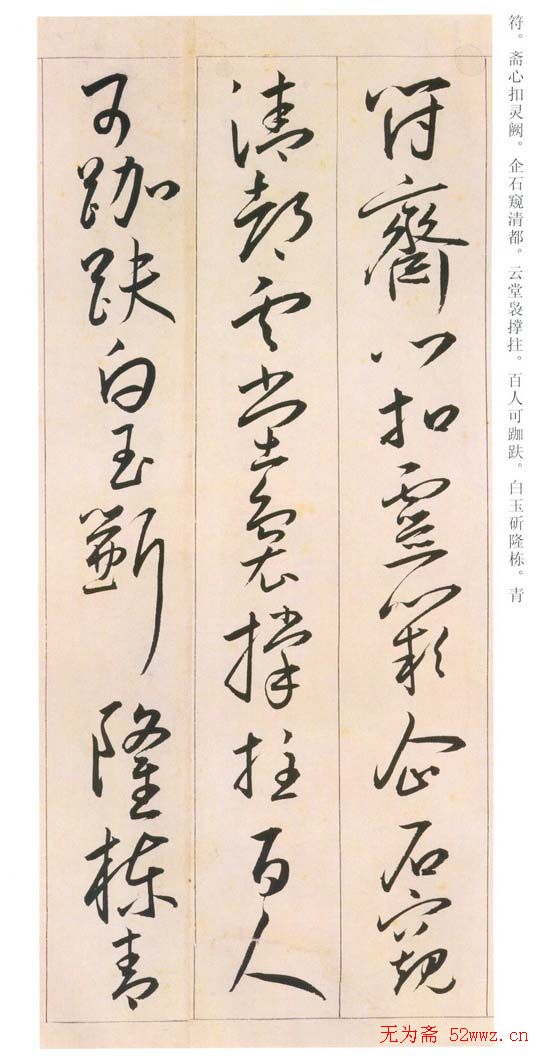 符。斋心扣灵阙。企石窥清都。云堂袅撑拄。百人可跏趺。白玉斫隆栋。青
符齋心扣靈闕企石窺
清都雲堂裊撐拄百人
可跏趺白玉斲隆棟青
无为斋 52wwz.cn